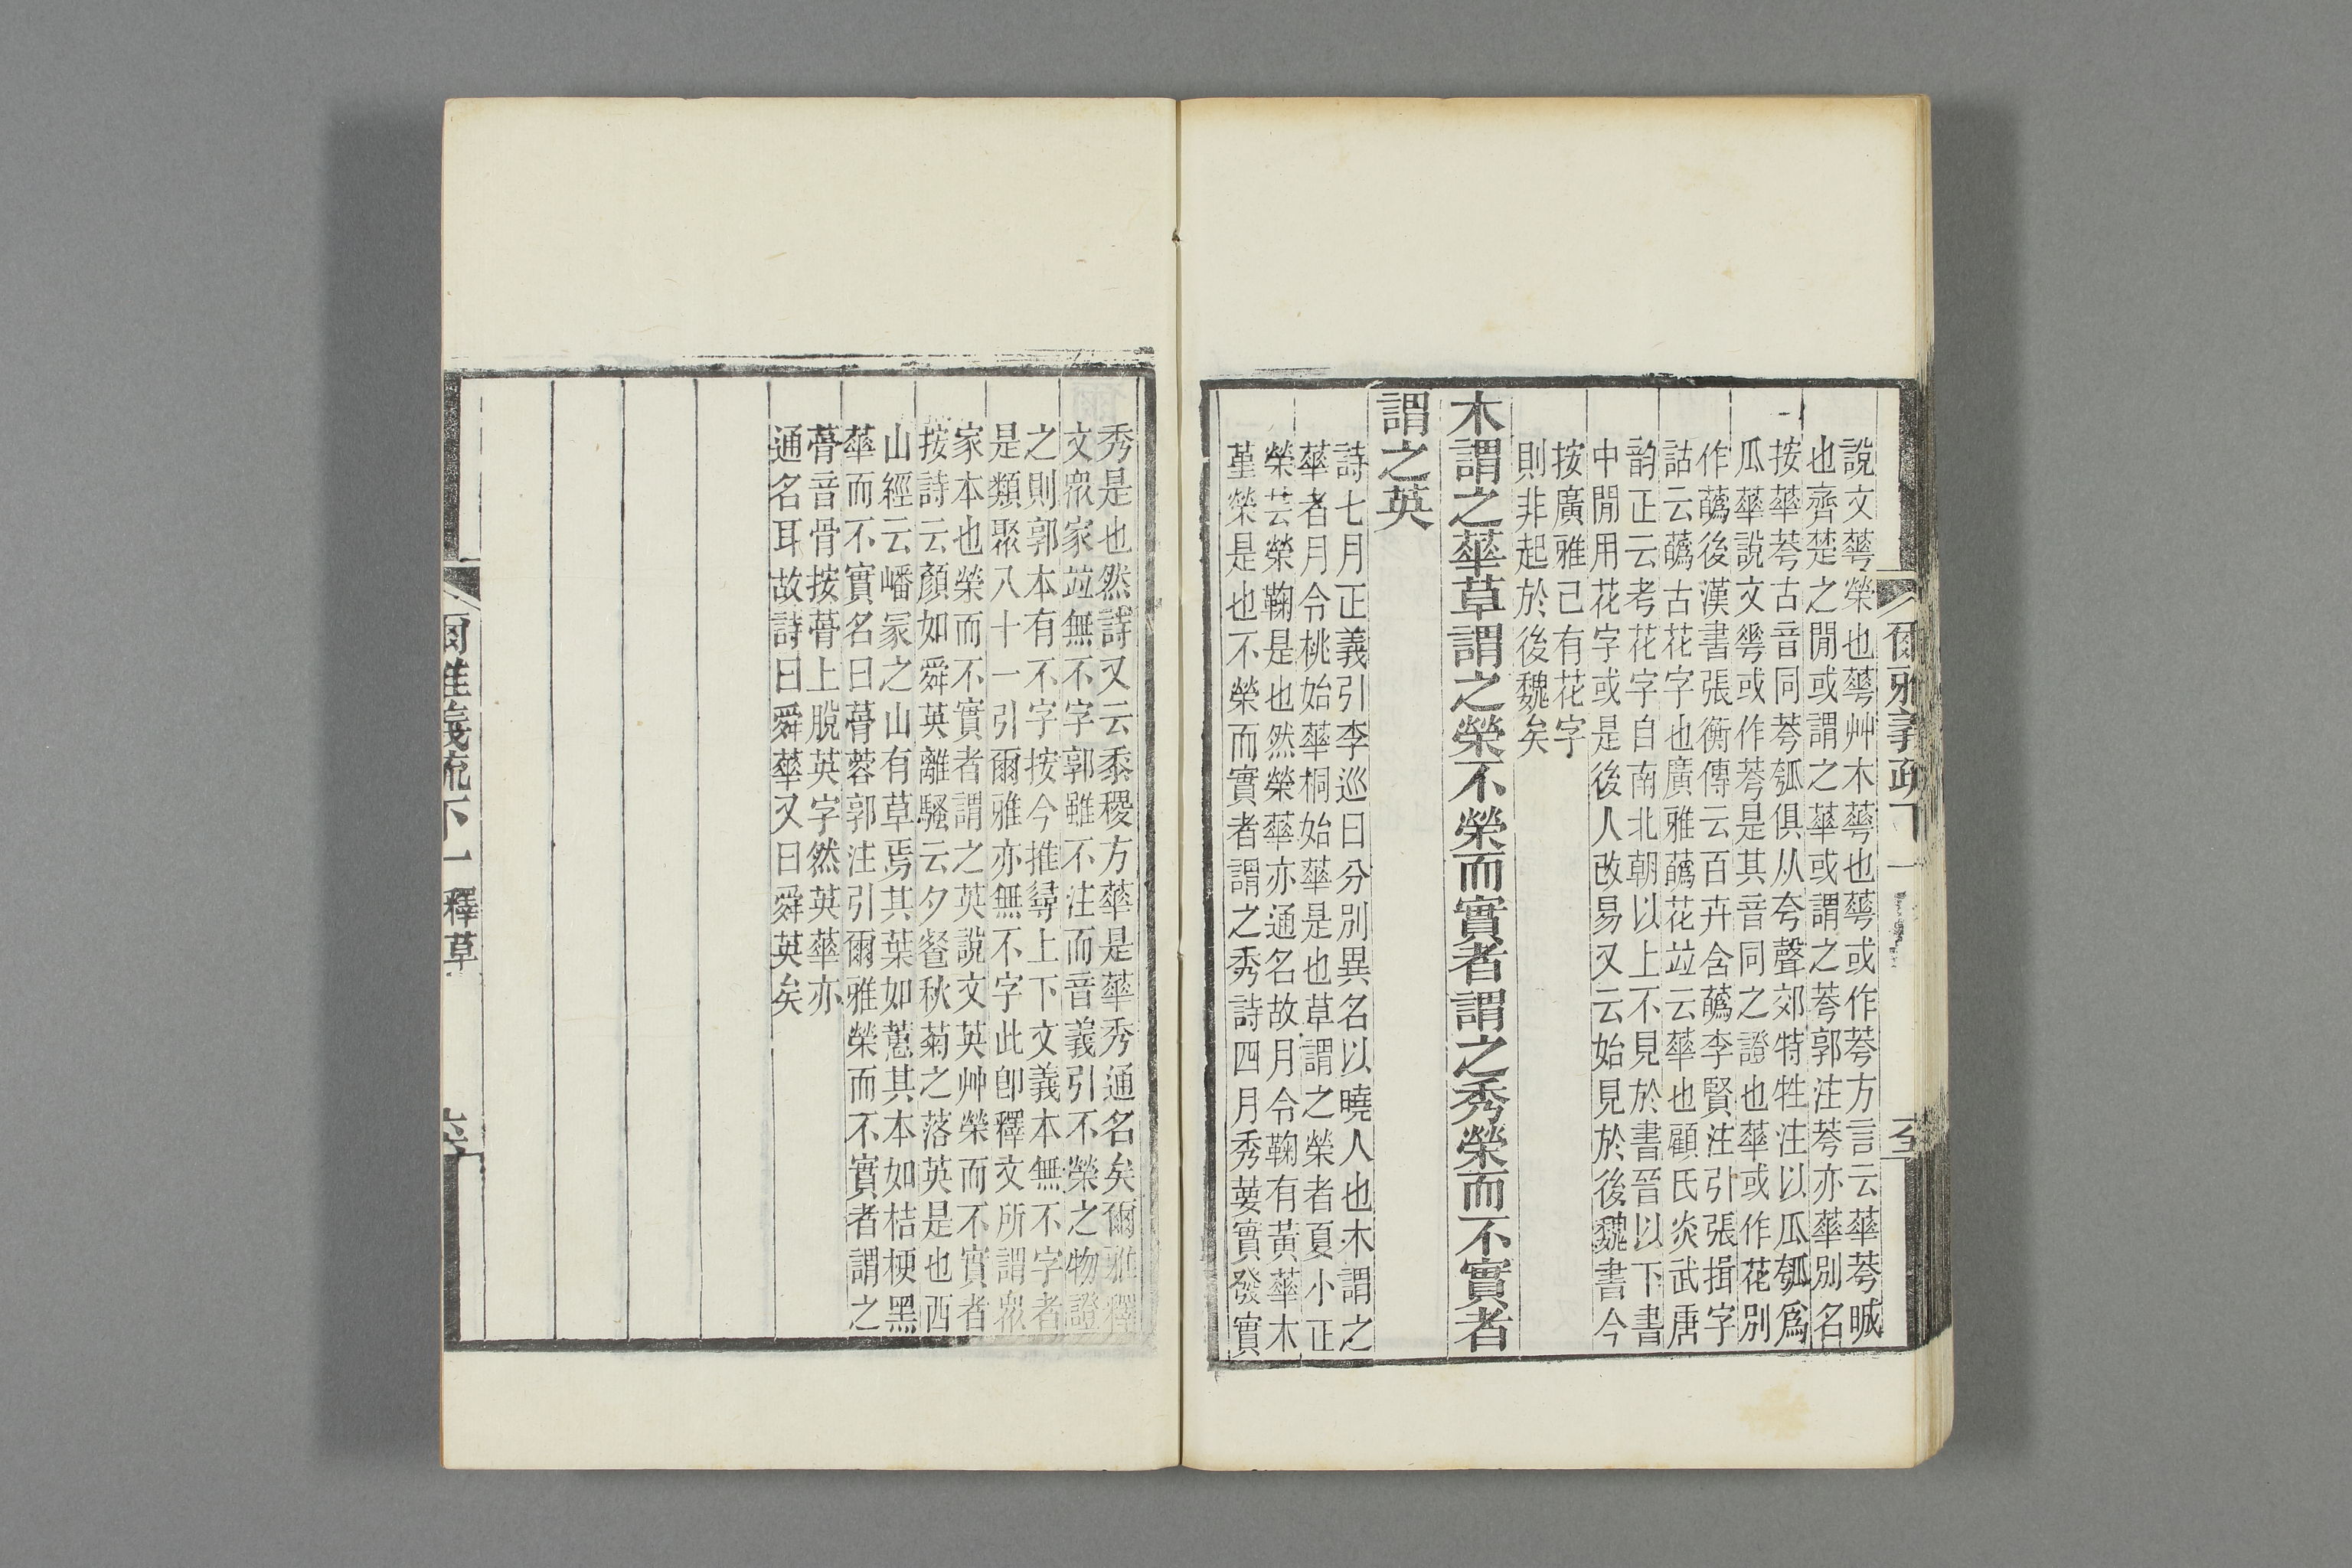 說文蕚榮也蕚艸木蕚也蕚或作荂方言云華荂晠
也齊楚之閒或謂之華或謂之荂郭注荂亦華別名
按華荂古音同荂瓠俱从夸聲郊特牲注以瓜瓠爲
瓜華說文䔢或作荂是其音同之證也華或作花別
作蘤後漢書張衡傳云百卉含蘤李賢注引張揖字
詁云蘤古花字也廣雅蘤花竝云華也顧氏炎武唐
韵正云考花字自南北朝以上不見於書晉以下書
中閒用花字或是後人改易又云始見於後魏書今
按廣雅已有花字
則非起於後魏矣
木謂之華草謂之榮不榮而實者謂之秀榮而不實者
謂之英
詩七月正義引李巡曰分別異名以曉人也木謂之
華者月令桃始華桐始華是也草謂之榮者夏小正
榮芸榮鞠是也然榮華亦通名故月令鞠有黃華木
堇榮是也不榮而實者謂之秀詩四月秀葽實發實
爾雅義疏下一
秀是也然詩又云黍稷方華是華秀通名矣爾雅釋
文眾家竝無不字郭雖不注而音義引不榮之物證
之則郭本有不字按今推尋上下文義本無不字者
是類聚八十一引爾雅亦無不字此卽釋文所謂眾
家本也榮而不實者謂之英說文英艸榮而不實者
按詩云顏如舜英離騷云夕餐秋菊之落英是也西
山經云嶓冢之山有草焉其葉如蕙其本如桔梗黑
華而不實名曰蓇蓉郭注引爾雅榮而不實者謂之
蓇音骨按蓇上脫英字然英華亦
通名耳故詩曰舜華又曰舜英矣
爾雅義疏下一 釋草